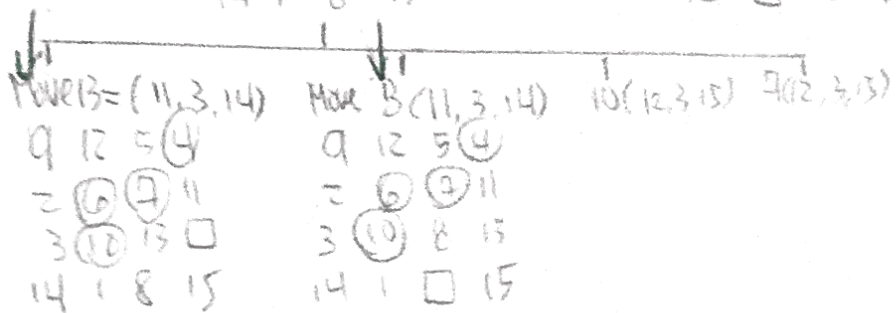 Move 13=(11,3,14)
9 12 5 4
2 6 7 11
3 10 13 □
14 1 8 15
Move 8(11,3,14)
9 12 5 4
2 6 7 11
3 10 8 13
14 1 □ 15
10(12,3,15)
7(12,3,15)